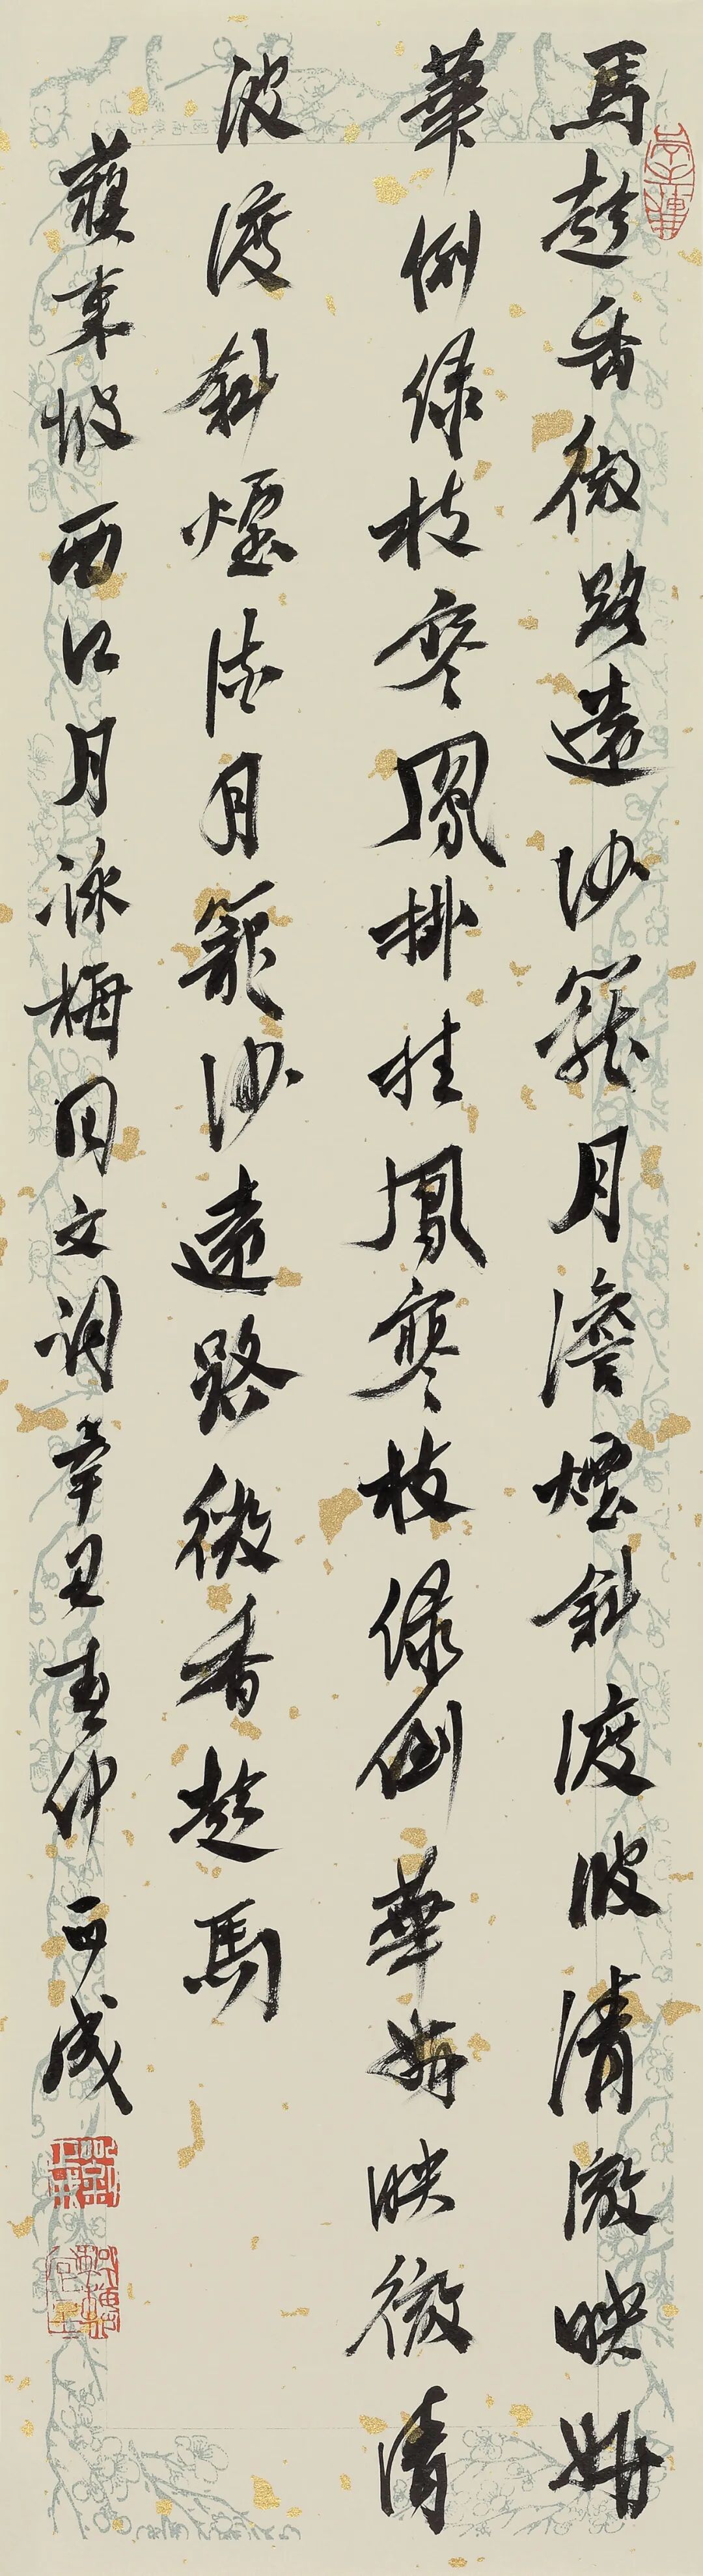 馬趁香微路遠沙籠月澹煙斜渡波清澈映妍
華倒綠枝寒鳳掛挂鳳寒枝綠倒華妍映澈清
波渡斜煙淡月籠沙遠路微香趁馬
蘇東坡西江月詠梅回文詞辛丑春仲西成